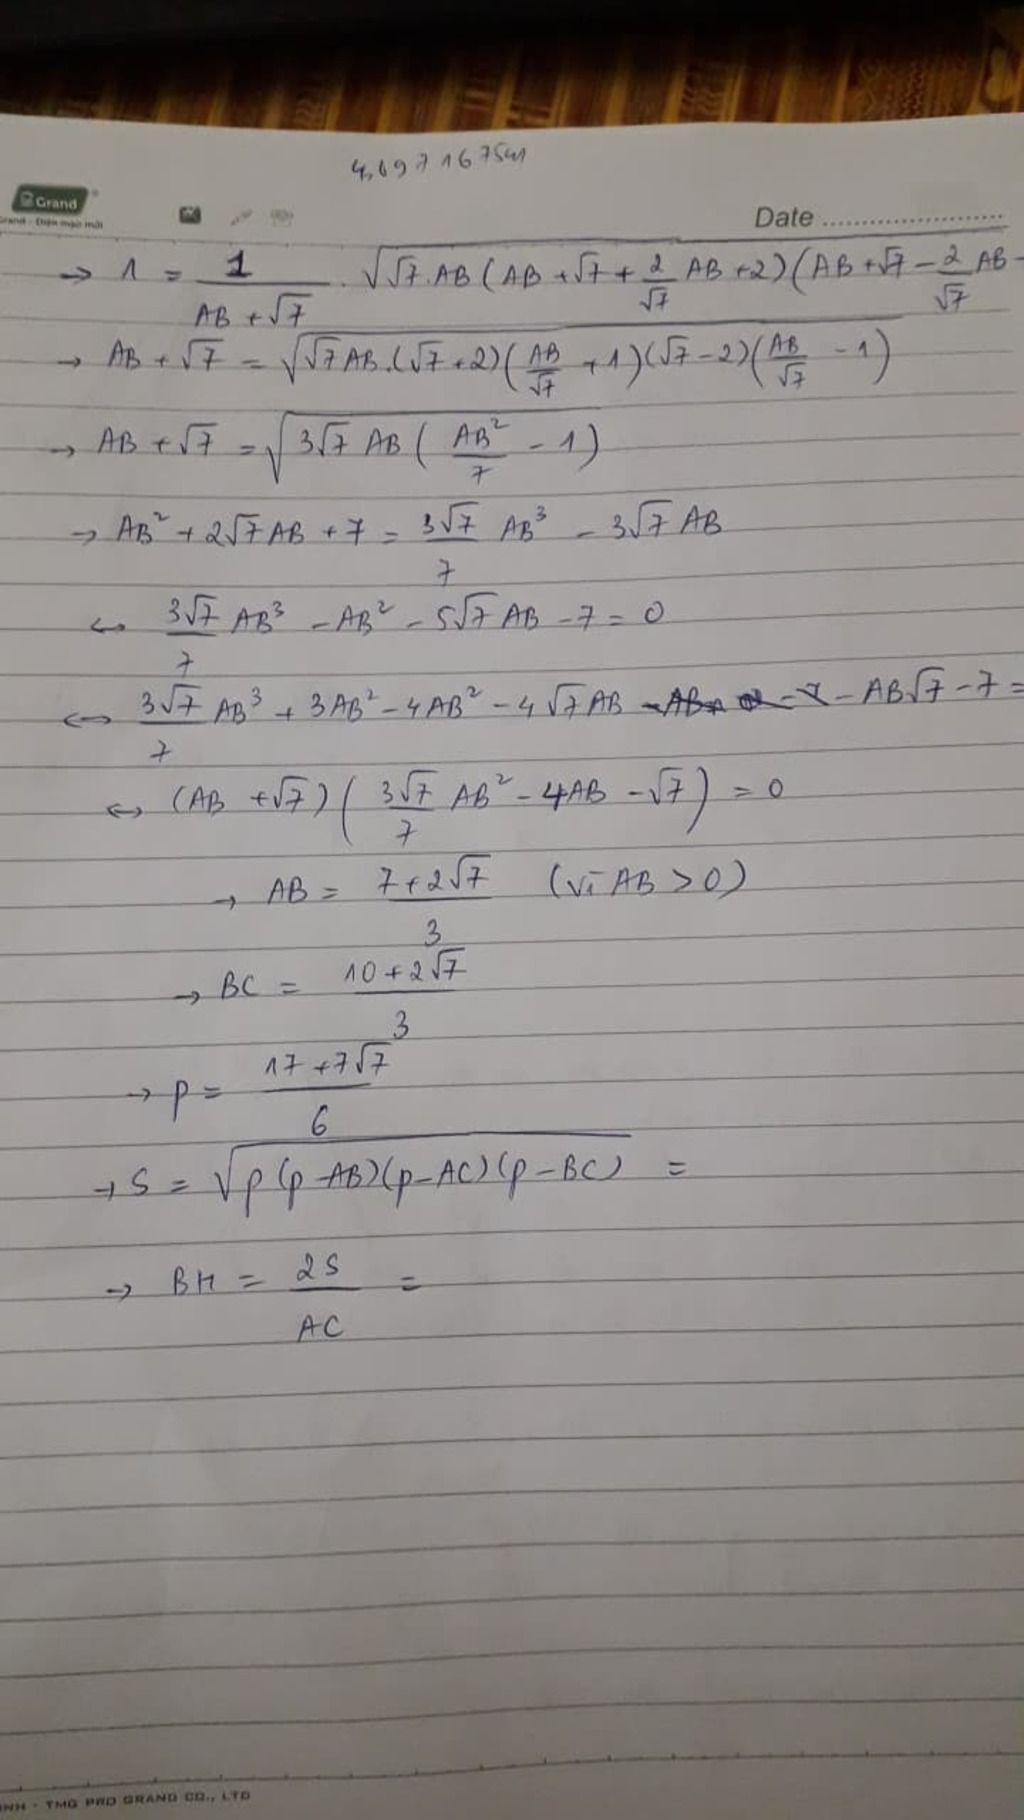 4,1971675m
Grand
Grand - Diện mạo mới
Date
→ 1 = 1/(AB + √7) . √(√7.AB (AB + √7 + 2/√7 AB + 2)(AB + √7 - 2/√7 AB -
→ AB + √7 = √(√7 AB.(√7 + 2)(AB/√7 + 1)(√7 - 2)(AB/√7 - 1))
→ AB + √7 = √(3√7 AB (AB²/7 - 1))
→ AB² + 2√7 AB + 7 = 3√7/7 AB³ - 3√7 AB
↔ 3√7/7 AB³ - AB² - 5√7 AB - 7 = 0
↔ 3√7/7 AB³ + 3AB² - 4AB² - 4√7 AB - AB√7 - 7 =
↔ (AB + √7)(3√7/7 AB² - 4AB - √7) = 0
→ AB = (7 + 2√7)/3 (vì AB > 0)
→ BC = (10 + 2√7)/3
→ p = (17 + 7√7)/6
→ S = √(p(p - AB)(p - AC)(p - BC)) =
→ BH = 2S/AC =
INH - TMG PRO GRAND CO., LTD